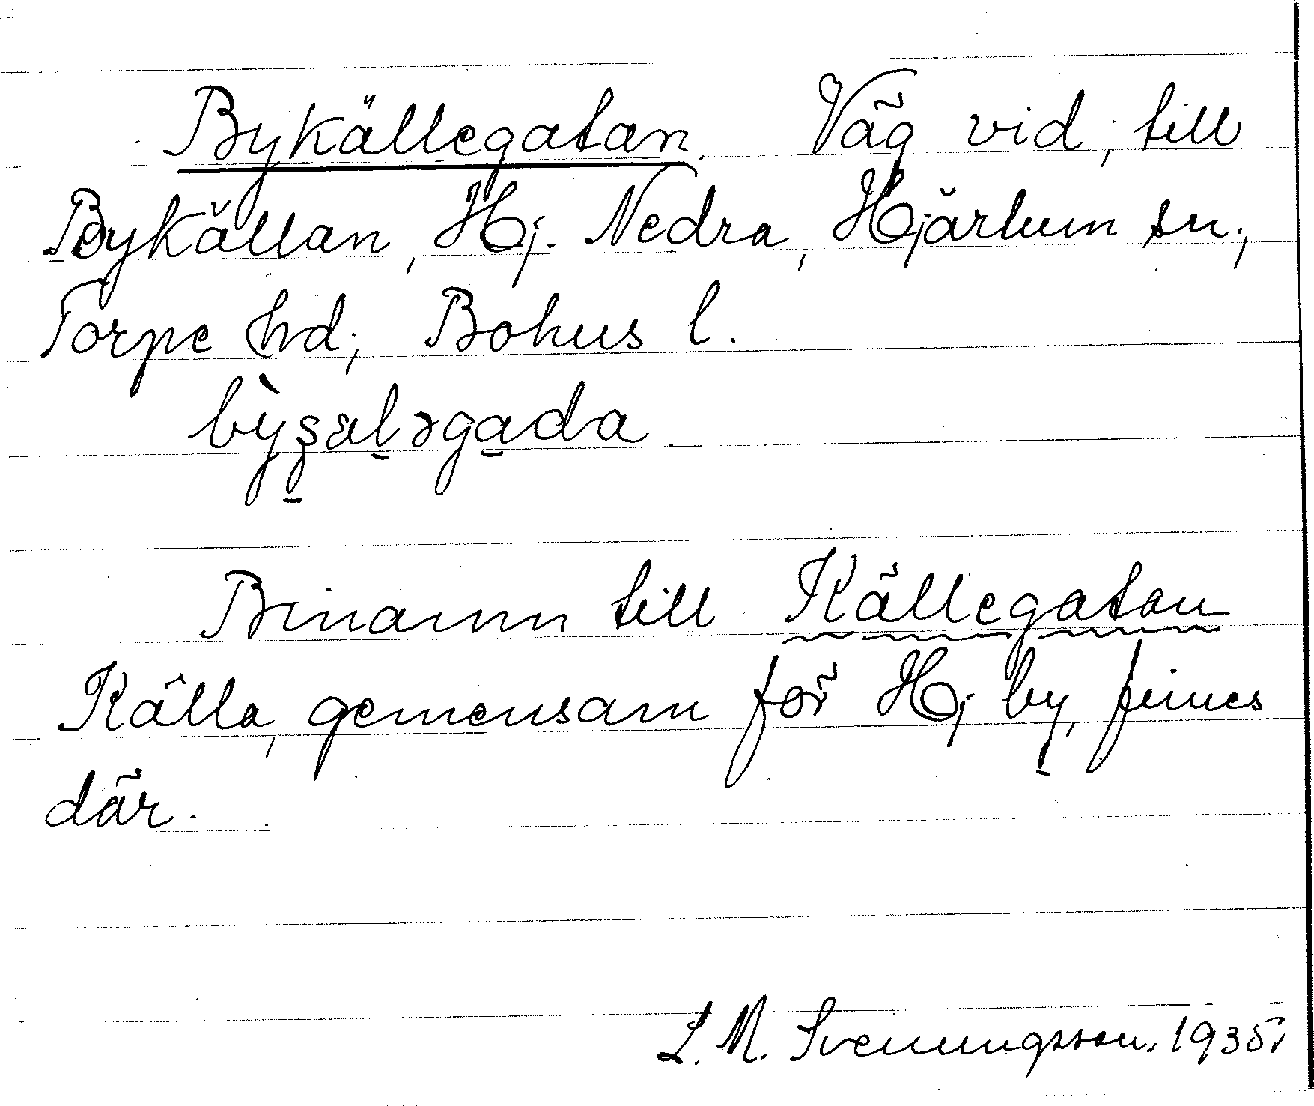 Bykällegatan. Väg vid, till
Bykällan, Hj. Nedra, Hjärtum sn.,
Torpe hd, Bohus l.
Binamn till Källegatan
Källa, gemensam för Hj by, finnes
där.
L. M. Svenungsson. 1935.